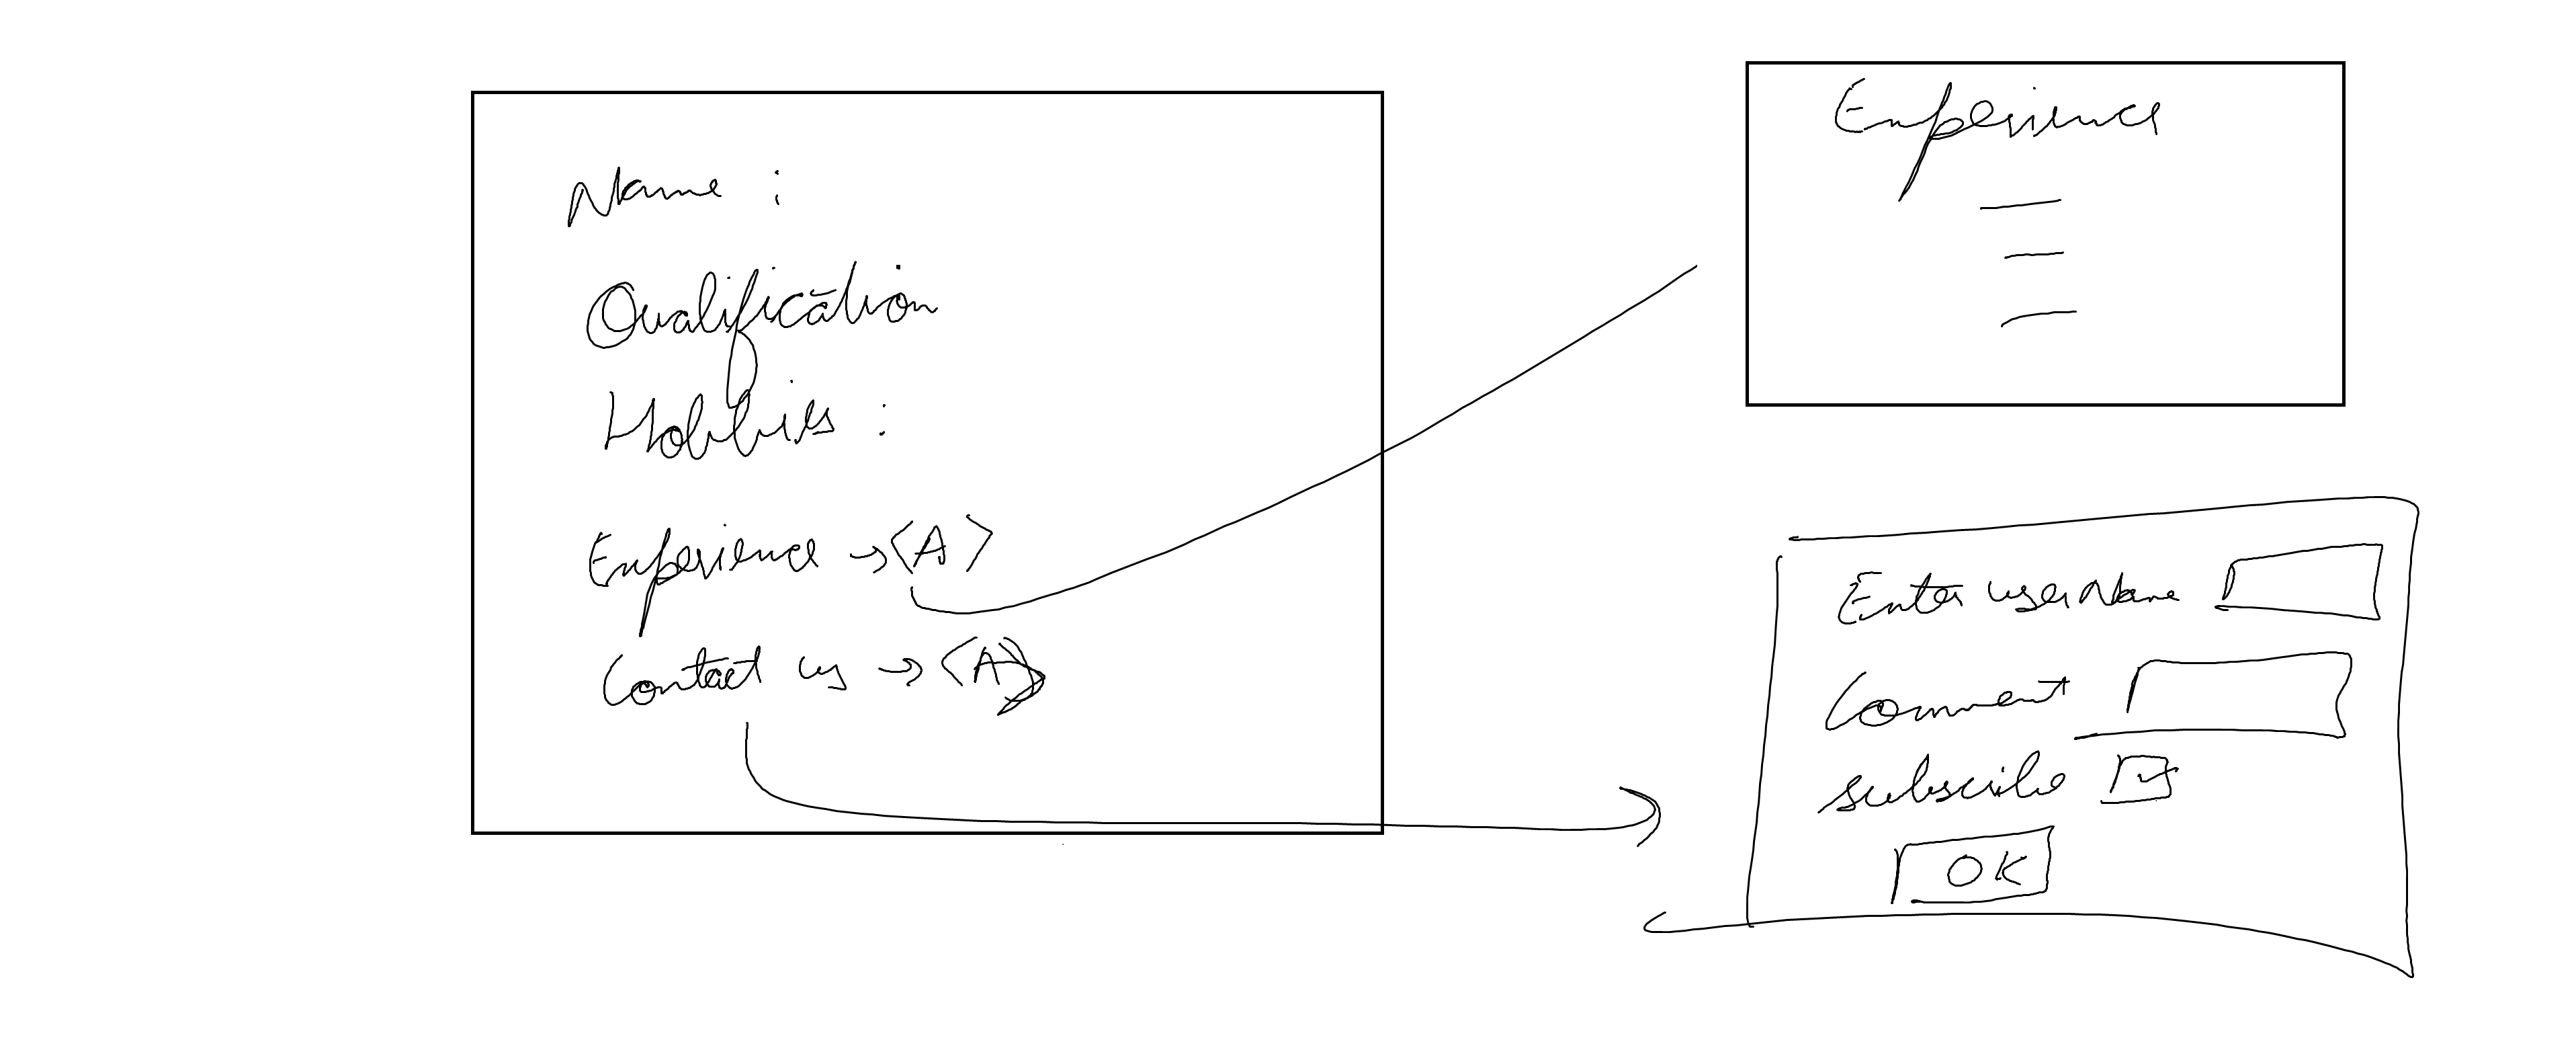 Name :
Qualification
Hobbies :
Experience → <A>
Contact us → <A>
Experience
Enter userName
Comment
subscribe
OK